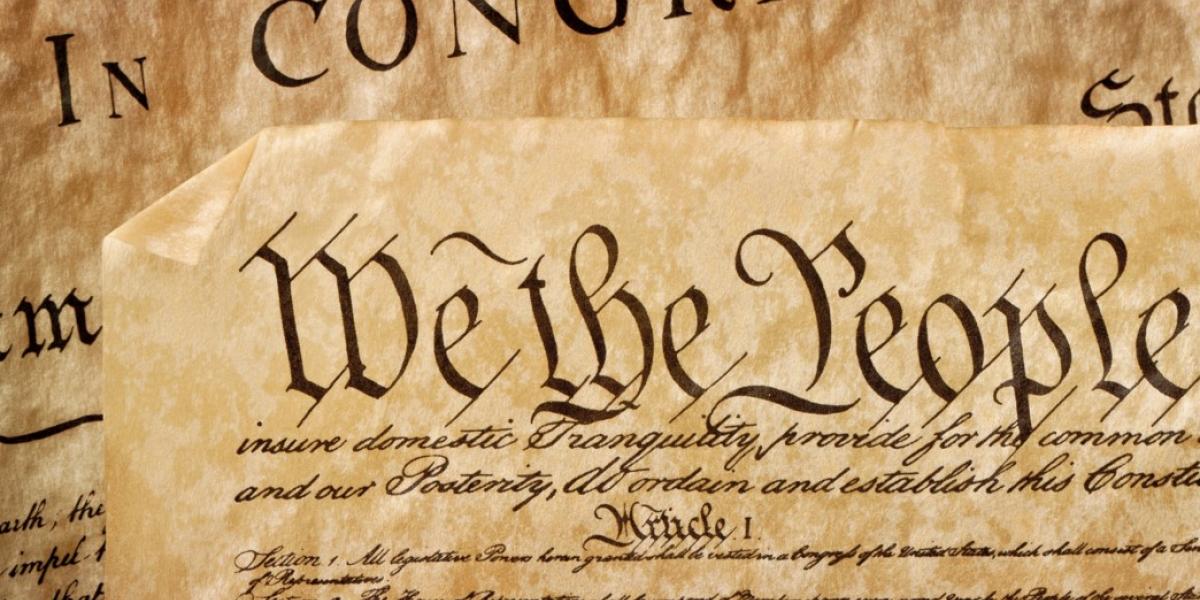 In CONGR
Sta
m
We the People
insure domestic Tranquility, provide for the common
and our Posterity, do ordain and establish this Constit
Article I.
Section 1. All legislative Powers herein granted shall be vested in a Congress of the United States, which shall consist of a Sen
of Representatives.
earth, the
impel t
that